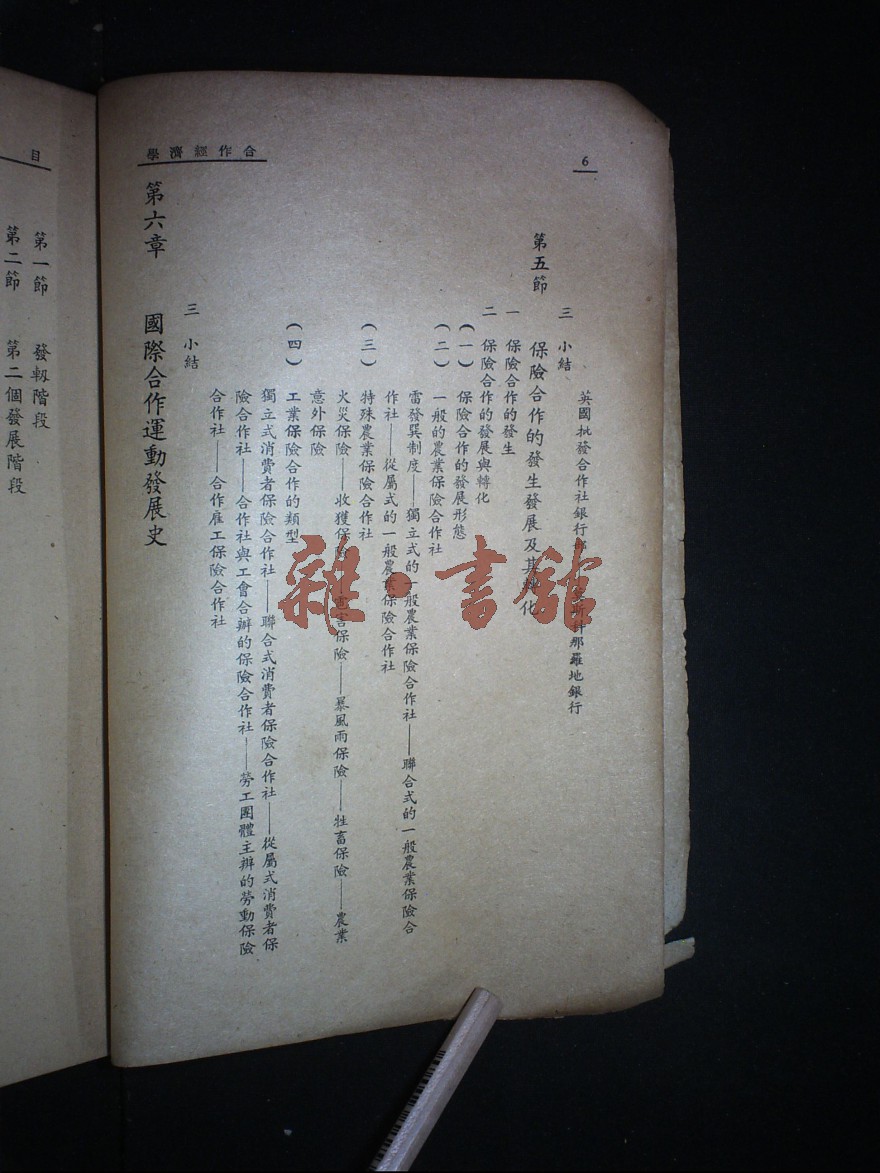 合作經濟學
6
英國批發合作社銀行
那羅地銀行
三 小結
第五節 保險合作的發生發展及其轉化
一 保險合作的發生
二 保險合作的發展與轉化
(一) 保險合作的發展形態
(二) 一般的農業保險合作社
雷發巽制度——獨立式的一般農業保險合作社——聯合式的一般農業保險合
作社——從屬式的一般農業保險合作社
(三) 特殊農業保險合作社
火災保險——收獲保險——雹害保險——暴風雨保險——牲畜保險——農業
意外保險
(四) 工業保險合作的類型
獨立式消費者保險合作社——聯合式消費者保險合作社——從屬式消費者保
險合作社——合作社與工會合辦的保險合作社——勞工團體主辦的勞動保險
合作社——合作雇工保險合作社
三 小結
第六章 國際合作運動發展史
目
第一節 發軔階段
第二節 第二個發展階段
雜·書館